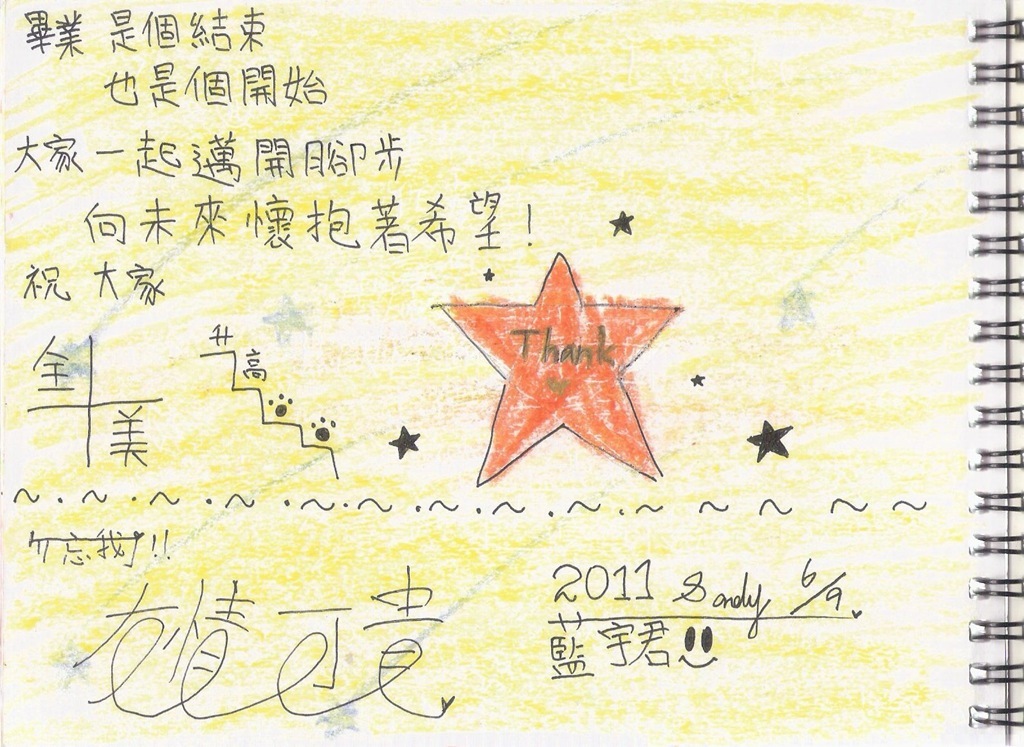 畢業 是個結束
也是個開始
大家一起邁開腳步
向未來懷抱著希望!
祝 大家
全
美
升
高
Thank
勿忘我!!
友情可貴
2011 Sandy 6/9
藍宇君